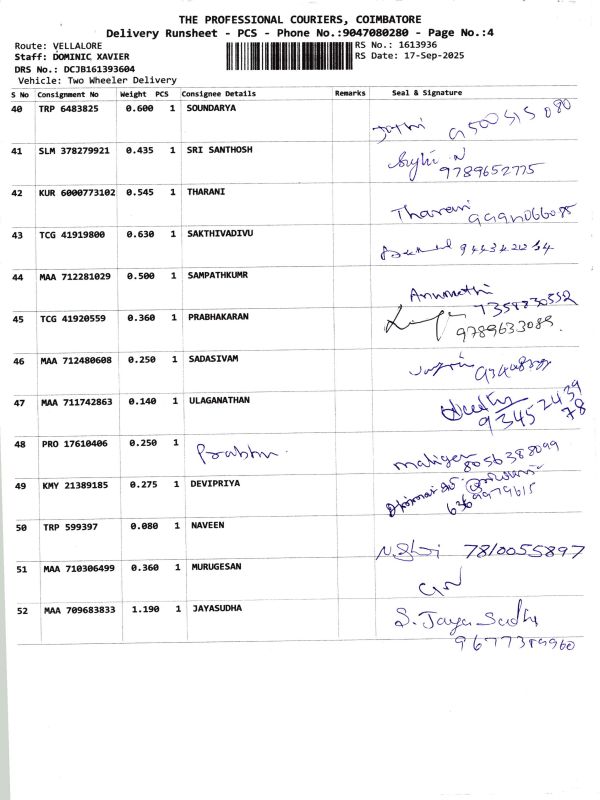 THE PROFESSIONAL COURIERS, COIMBATORE
Delivery Runsheet - PCS - Phone No.:9047080280 - Page No.:4
Route: VELLALORE
Staff: DOMINIC XAVIER
DRS No.: DCJB161393604
Vehicle: Two Wheeler Delivery
RS No.: 1613936
RS Date: 17-Sep-2025
S No Consignment No Weight PCS Consignee Details Remarks Seal & Signature
40 TRP 6483825 0.600 1 SOUNDARYA
41 SLM 378279921 0.435 1 SRI SANTHOSH
9789652775
42 KUR 6000773102 0.545 1 THARANI
Tharani
43 TCG 41919800 0.630 1 SAKTHIVADIVU
44 MAA 712281029 0.500 1 SAMPATHKUMR
7358730552
45 TCG 41920559 0.360 1 PRABHAKARAN
9789633089.
46 MAA 712480608 0.250 1 SADASIVAM
47 MAA 711742863 0.140 1 ULAGANATHAN
93452439
78
48 PRO 17610406 0.250 1 Prabhu.
8056388099
49 KMY 21389185 0.275 1 DEVIPRIYA
6369979615
50 TRP 599397 0.080 1 NAVEEN
7810055897
51 MAA 710306499 0.360 1 MURUGESAN
52 MAA 709683833 1.190 1 JAYASUDHA
S. Jaya Sudha
9677389960